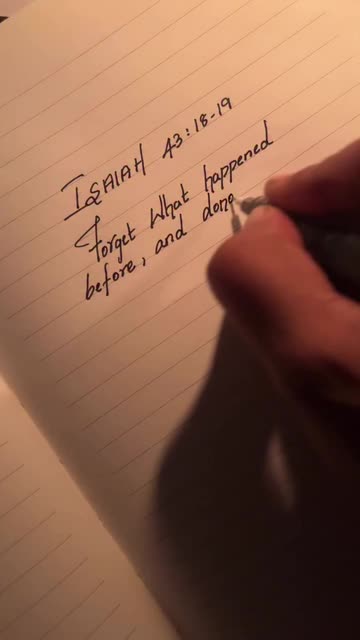 ISAIAH 43:18-19
Forget What happened
before, and do no